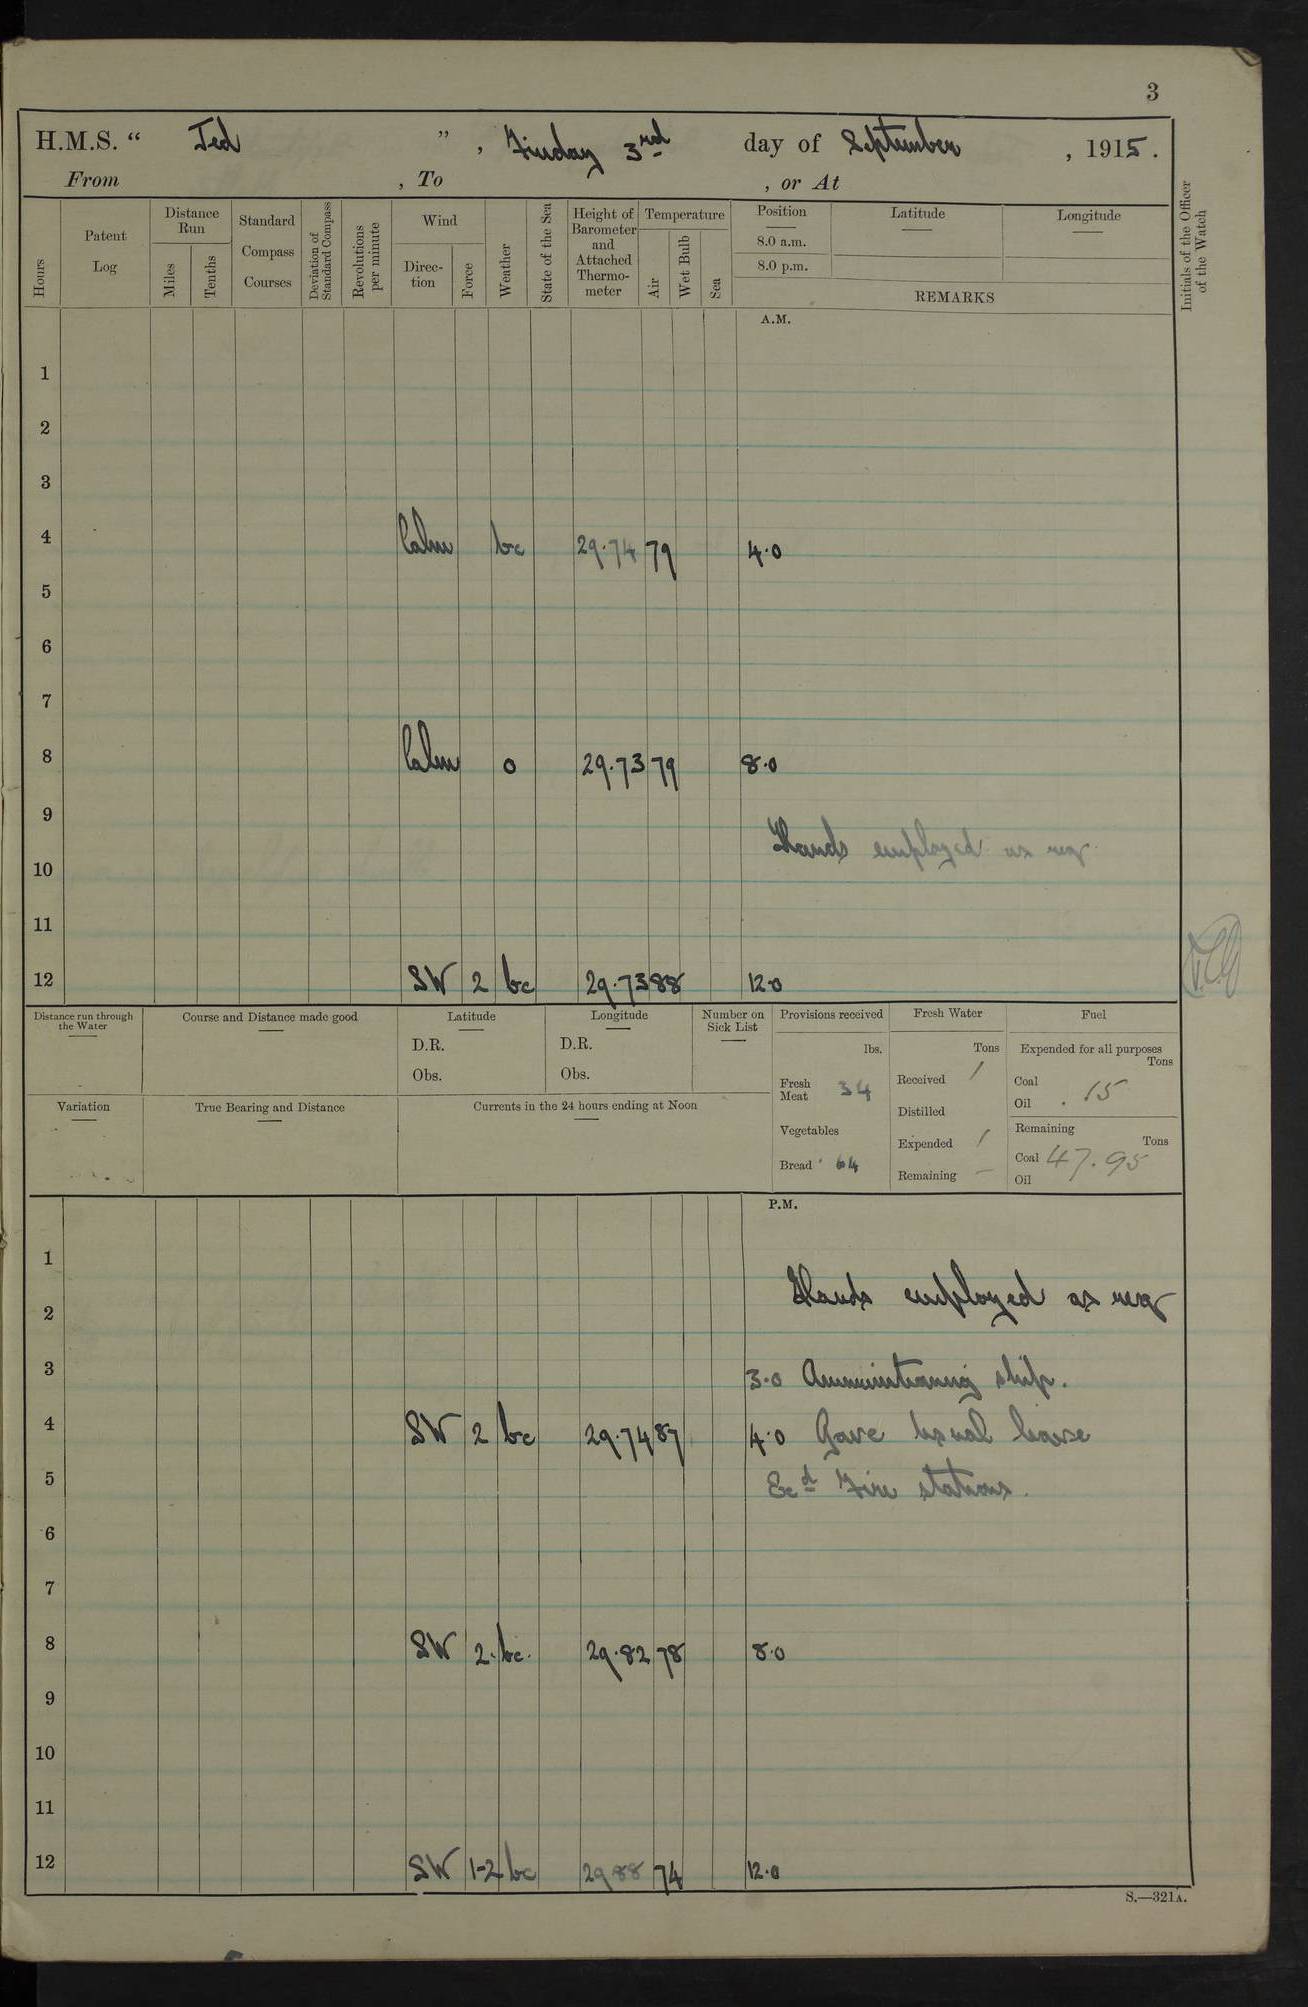 3
H.M.S. “ Ted ”, Friday 3rd day of September, 1915.
From , To , or At
Hours
Patent Log
Distance Run
Miles
Tenths
Standard Compass Courses
Deviation of Standard Compass
Revolutions per minute
Wind
Direction
Force
Weather
State of the Sea
Height of Barometer and Attached Thermometer
Temperature
Air
Wet Bulb
Sea
Position
8.0 a.m.
8.0 p.m.
Latitude
Longitude
REMARKS
Initials of the Officer of the Watch
A.M.
1
2
3
4 Calm bc 29.74 79 4.0
5
6
7
8 Calm o 29.73 79 8.0
9
Hands employed as req
10
11
12 SW 2 bc 29.73 88 12.0
Distance run through the Water
Course and Distance made good
Latitude
D.R.
Obs.
Longitude
D.R.
Obs.
Number on Sick List
Provisions received
lbs.
Fresh Meat 34
Vegetables
Bread 64
Fresh Water
Tons
Received 1
Distilled
Expended 1
Remaining —
Fuel
Expended for all purposes
Tons
Coal
Oil
.15
Remaining
Tons
Coal 47.95
Oil
Variation
True Bearing and Distance
Currents in the 24 hours ending at Noon
P.M.
1
Hands employed as req
2
3 3.0 Ammunitioning ship.
4 SW 2 bc 29.74 87 4.0 Gave usual leave
5 Exd Fire stations.
6
7
8 SW 2. bc. 29.82 78 8.0
9
10
11
12 SW 1-2 bc 29 88 74 12.0
S.—321A.